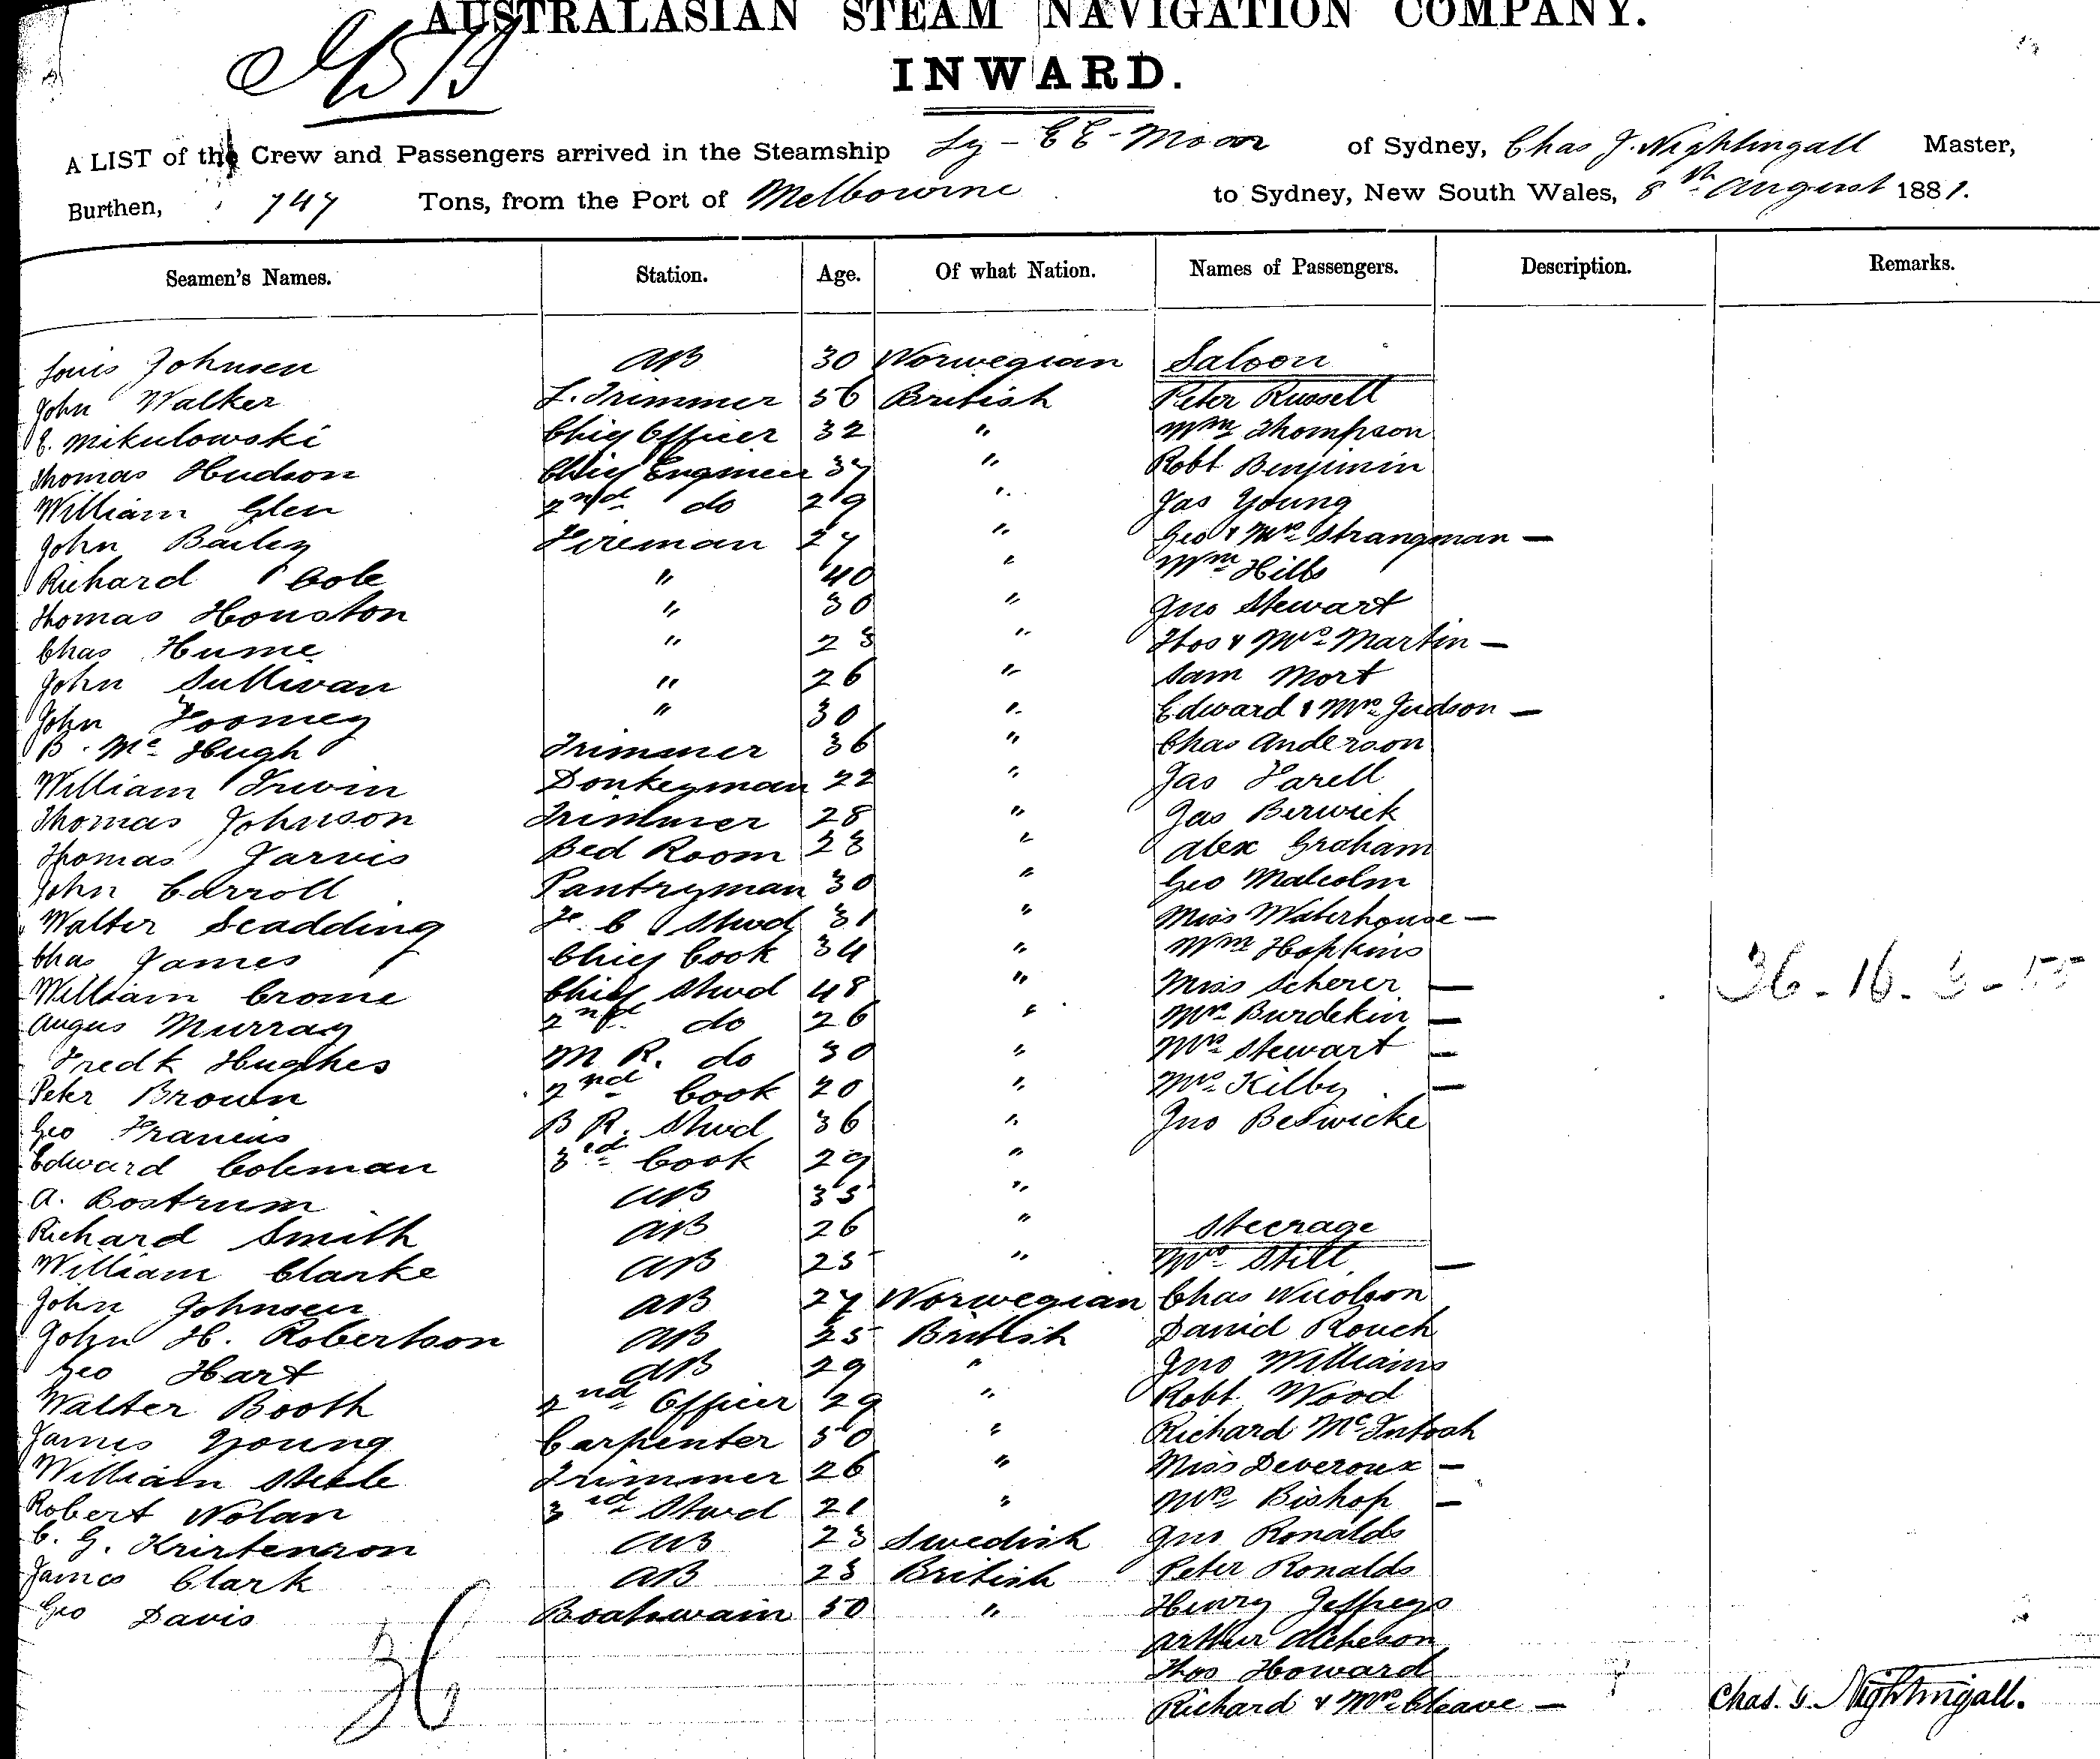 AUSTRALASIAN STEAM NAVIGATION COMPANY.
INWARD.
A LIST of the Crew and Passengers arrived in the Steamship Ly-EE-Moon of Sydney, Chas J. Nightingall Master,
Burthen, 747 Tons, from the Port of Melbourne to Sydney, New South Wales, 8th August 1881.
Seamen's Names. Station. Age. Of what Nation. Names of Passengers. Description. Remarks.
Louis Johnsen AB 30 Norwegian Saloon
John Walker L. Trimmer 36 British Peter Russell
E. Mikulowski Chief Officer 32 " Wm Thompson
Thomas Hudson Chief Engineer 37 " Robt Benjimin
William Glen 2nd do 29 " Jas Young
John Bailey Fireman 27 " Geo & Mrs Strangman —
Richard Cole " 40 " Wm Hills
Thomas Houston " 30 " Jno Stewart
Chas Hume " 23 " Thos & Mrs Martin —
John Sullivan " 26 " Sam Mort
John Toomey " 30 " Edward & Mrs Judson —
B. McHugh Trimmer 36 " Chas Anderson
William Irwin Donkeyman 22 " Jas Farell
Thomas Johnson Trimmer 28 " Jas Berwick
Thomas Jarvis Bed Room 23 " Alex Graham
John Carroll Pantryman 30 " Geo Malcolm
Walter Scadding F. C Stwd 31 " Miss Waterhouse —
Chas James Chief Cook 34 " Wm Hopkins
William Crome Chief Stwd 48 " Miss Scherer —
Angus Murray 2nd do 26 " Mrs Burdekin —
Fredk Hughes M R. do 30 " Mrs Stewart —
Peter Brown 2nd Cook 20 " Mrs Kilby —
Geo Francis B R. Stwd 36 " Jno Beswicke
Edward Coleman 3rd Cook 29 "
A. Bostrum AB 35 "
Richard Smith AB 26 " Steerage
William Clarke AB 25 " Mrs Still —
John Johnsen AB 27 Norwegian Chas Nicolson
John H. Robertson AB 25 British David Rouch
Geo Hart AB 29 " Jno Williams
Walter Booth 2nd Officer 29 " Robt Wood
James Young Carpenter 50 " Richard McIntosh
William Steele Trimmer 26 " Miss Deveroux —
Robert Nolan 3rd Stwd 21 " Mrs Bishop —
C. G. Kristenson AB 23 Swedish Jno Ronalds
James Clark AB 23 British Peter Ronalds
Geo Davis Boatswain 50 " Henry Jeffreys
Arthur Acheson
Thos Howard
Richard & Mrs Cleave —
36
36-16-3-55
Chas. J. Nightingall.